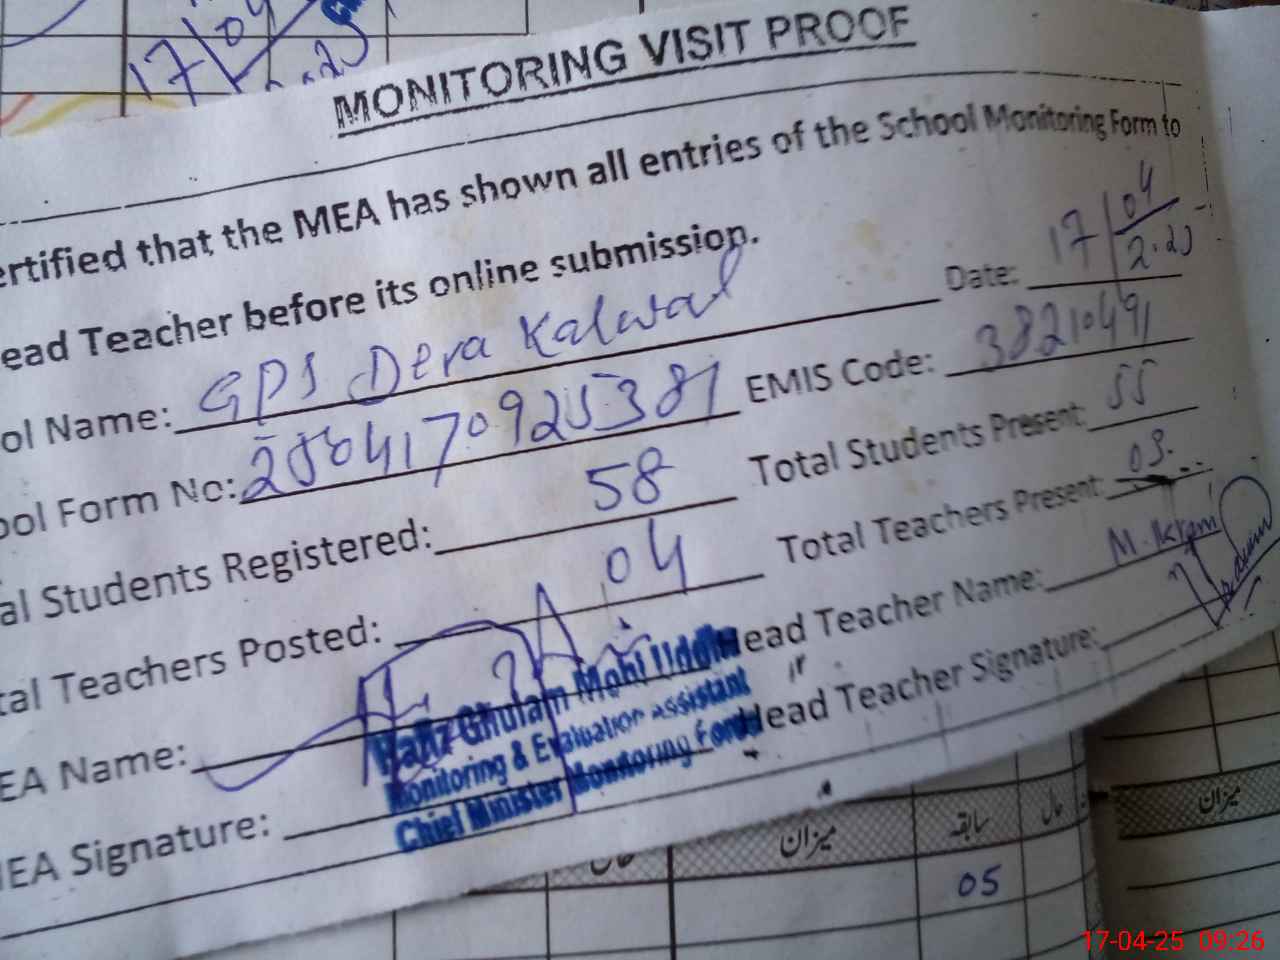 17/04
MONITORING VISIT PROOF
ertified that the MEA has shown all entries of the School Monitoring Form to
ead Teacher before its online submission.
Date: 17/04/2025
ol Name: GPS Dera Kalwal
ool Form No: 250417092538 EMIS Code: 38210491
al Students Registered: 58 Total Students Present: 55
tal Teachers Posted: 04 Total Teachers Present: 03.
EA Name: Hafiz Ghulam Mohi Uddin Head Teacher Name: M. Ikram
Monitoring & Evaluation Assistant
MEA Signature: Chief Minister Monitoring Force Head Teacher Signature:
میزان سابقہ حال میزان
05
17-04-25 09:26